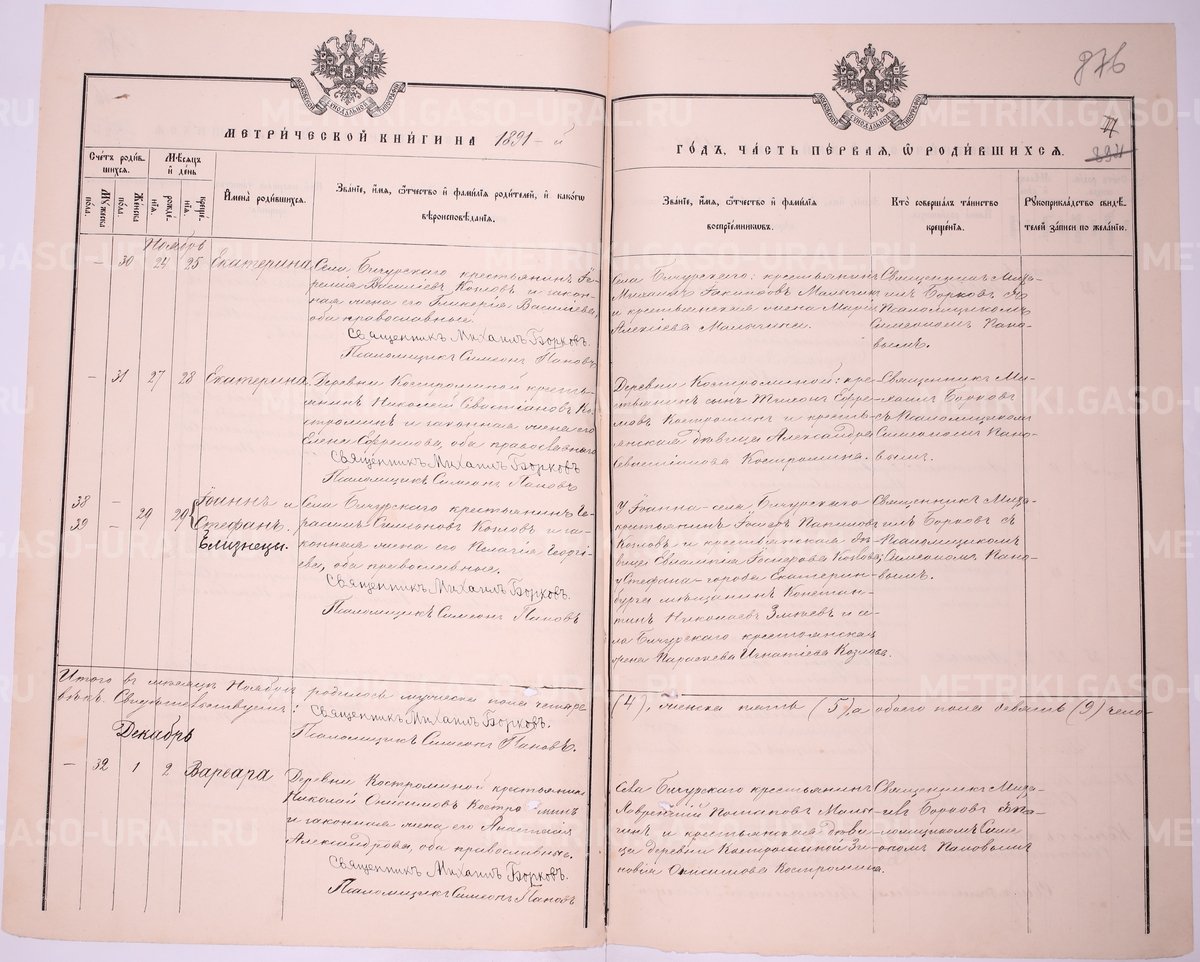 876
77
МЕТРИ́ЧЕСКОЙ КНИ́ГИ НА 1891-й
ГО́ДЪ, ЧАСТЬ ПЕ́РВАЯ, Ѡ РОДИ́ВШИХСЯ.
Сче́тъ роди́вшихся.
Мѣ́сяцъ и де́нь
Му́жеска по́ла.
Же́нска по́ла.
рожде́нія.
креще́нія.
И́мена̀ роди́вшихся.
Зва́ніе, и́мя, ѻ҆́тчество и фами́лія роди́телей, и како́гѡ
вѣроисповѣ́данія.
Зва́ніе, и́мя, ѻ҆́тчество и фами́лія
воспріе́мниковъ.
Кто̀ соверша́лъ та́инство
креще́нія.
Рꙋкоприкла́дство свидѣ́-
телей за́писи по жела́нію.
Ноябрь
– 30 24 25 Екатерина
Села Бичурскаго крестьянинъ
Василіевъ Козловъ и закон-
ная жена его Гликерія Василіева,
оба православные.
Священникъ Михаилъ Борковъ.
Псаломщикъ Симеонъ Пановъ
Села Бичурскаго: крестьянинъ
Михаилъ Іакинѳовъ
и крестьянская жена Марія
Алексіева
Священникъ Миха-
илъ Борковъ съ
Псаломщикомъ
Симеономъ Пано-
вымъ.
– 31 27 28 Екатерина
Деревни Костроминой кресть-
янинъ Николай Севастіановъ Ко-
строминъ и законная жена его
Елена Ефремова, оба православнаго
Священникъ Михаилъ Борковъ
Псаломщикъ Симеонъ Пановъ
Деревни Костроминой: кре-
стьянинъ сынъ Ефре-
мовъ Костроминъ и кресть-
янская дѣвица Александра
Севастіанова Костромина.
Священникъ Ми-
хаилъ Борковъ
съ Псаломщикомъ
Симеономъ Пано-
вымъ.
38
39
– – 29 29
Іоаннъ и
Стефанъ.
Близнецы.
Села Бичурскаго крестьянинъ Ге-
расимъ Симеоновъ Козловъ и за-
конная жена его Пелагія Георгі-
ева, оба православные.
Священникъ Михаилъ Борковъ.
Псаломщикъ Симеонъ Пановъ
У Іоанна – села Бичурскаго
крестьянинъ
Козловъ и крестьянская дѣ-
вица Евлампія Козлова;
у Стефана – города Екатерин-
бурга мѣщанинъ Констан-
тинъ Николаевъ Змѣевъ и се-
ла Бичурскаго крестьянская
жена Параскева Игнатіева Козлова.
Священникъ Миха-
илъ Борковъ съ
Псаломщикомъ
Симеономъ Пано-
вымъ.
Итого въ мѣсяцѣ Ноябрѣ родилось мужеска пола четыре (4), женска пять (5), а обоего пола девять (9) чело-
вѣкъ. Свидѣтельствуемъ: Священникъ Михаилъ Борковъ.
Псаломщикъ Симеонъ Пановъ.
Декабрь
– 32 1 2 Варвара
Деревни Костроминой крестьянинъ
Николай Онисимовъ Костроминъ
и законная жена его Анастасія
Александрова, оба православные.
Священникъ Михаилъ Борковъ.
Псаломщикъ Симеонъ Пановъ
Села Бичурскаго крестьянинъ
Лаврентій
и крестьянская дѣви-
ца деревни Костроминой Зи-
новія Онисимова Костромина.
Священникъ Миха-
илъ Борковъ
Псаломщикомъ Симе-
ономъ Пановымъ
METRIKI.GASO-URAL.RU